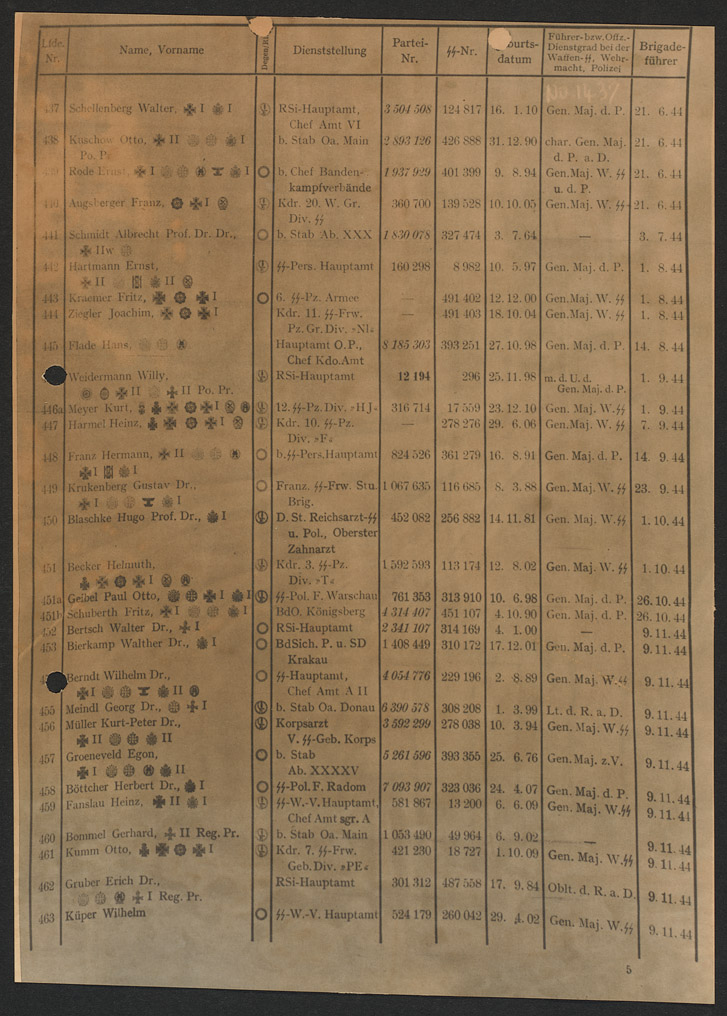 Lfde. Nr. Name, Vorname Degen/Ri. Dienststellung Partei-Nr. ᛋᛋ-Nr. burts-datum Führer-bzw.Offz.-Dienstgrad bei der Waffen-ᛋᛋ, Wehr-macht, Polizei Brigade-führer
437 Schellenberg Walter, I I RSi-Hauptamt, 3 504 508 124 817 16. 1.10 Gen. Maj. d. P. 21. 6.44
Chef Amt VI
438 Kuschow Otto, II I b. Stab Oa. Main 2 893 126 426 888 31.12.90 char. Gen. Maj. 21. 6.44
Po. Pr. d. P. a. D.
439 Rode Ernst, I I b. Chef Banden- 1 937 929 401 399 9. 8.94 Gen.Maj. W. ᛋᛋ 21. 6.44
kampfverbände u. d. P.
440 Augsberger Franz, I Kdr. 20. W. Gr. 360 700 139 528 10.10.05 Gen.Maj. W. ᛋᛋ 21. 6.44
Div. ᛋᛋ
441 Schmidt Albrecht Prof. Dr. Dr., b. Stab Ab. XXX 1 830 078 327 474 3. 7.64 — 3. 7.44
IIw
442 Hartmann Ernst, ᛋᛋ-Pers. Hauptamt 160 298 8 982 10. 5.97 Gen. Maj. d. P. 1. 8.44
II II
443 Kraemer Fritz, I 6. ᛋᛋ-Pz. Armee — 491 402 12.12.00 Gen.Maj. W. ᛋᛋ 1. 8.44
444 Ziegler Joachim, I Kdr. 11. ᛋᛋ-Frw. — 491 403 18.10.04 Gen.Maj. W. ᛋᛋ 1. 8.44
Pz. Gr. Div. »Nl«
445 Flade Hans, Hauptamt O.P., 8 185 303 393 251 27.10.98 Gen. Maj. d. P. 14. 8.44
Chef Kdo.Amt
Weidermann Willy, RSi-Hauptamt 12 194 296 25.11.98 m. d. U. d. 1. 9.44
II II Po. Pr. Gen. Maj. d. P.
446a Meyer Kurt, I 12. ᛋᛋ-Pz. Div. »HJ« 316 714 17 559 23.12.10 Gen. Maj. W. ᛋᛋ 1. 9.44
447 Harmel Heinz, I Kdr. 10. ᛋᛋ-Pz. — 278 276 29. 6.06 Gen. Maj. W. ᛋᛋ 7. 9.44
Div. »F«
448 Franz Hermann, II b.ᛋᛋ-Pers.Hauptamt 824 526 361 279 16. 8.91 Gen. Maj. d. P. 14. 9.44
I I
449 Krukenberg Gustav Dr., Franz. ᛋᛋ-Frw. Stu. 1 067 635 116 685 8. 3.88 Gen. Maj. W. ᛋᛋ 23. 9.44
I I Brig.
450 Blaschke Hugo Prof. Dr., I D. St. Reichsarzt-ᛋᛋ 452 082 256 882 14.11.81 Gen. Maj. W.ᛋᛋ 1.10.44
u. Pol., Oberster
Zahnarzt
451 Becker Helmuth, Kdr. 3. ᛋᛋ-Pz. 1 592 593 113 174 12. 8.02 Gen. Maj. W. ᛋᛋ 1.10.44
I Div. »T«
451a Geibel Paul Otto, I I ᛋᛋ-Pol. F. Warschau 761 353 313 910 10. 6.98 Gen. Maj. d. P. 26.10.44
451b Schuberth Fritz, I I BdO. Königsberg 4 314 407 451 107 4.10.90 Gen. Maj. d. P. 26.10.44
452 Bertsch Walter Dr., I RSi-Hauptamt 2 341 107 314 169 4. 1.00 — 9.11.44
453 Bierkamp Walther Dr., I BdSich. P. u. SD 1 408 449 310 172 17.12.01 Gen. Maj. d. P. 9.11.44
Krakau
Berndt Wilhelm Dr., ᛋᛋ-Hauptamt, 4 054 776 229 196 2. 8.89 Gen. Maj. W.ᛋᛋ 9.11.44
I II Chef Amt A II
455 Meindl Georg Dr., I b. Stab Oa. Donau 6 390 578 308 208 1. 3.99 Lt. d. R. a. D. 9.11.44
456 Müller Kurt-Peter Dr., Korpsarzt 3 592 299 278 038 10. 3.94 Gen. Maj. W.ᛋᛋ 9.11.44
II II V. ᛋᛋ-Geb. Korps
457 Groeneveld Egon, b. Stab 5 261 596 393 355 25. 6.76 Gen. Maj. z.V. 9.11.44
I I Ab. XXXXV
458 Böttcher Herbert Dr., I ᛋᛋ-Pol. F. Radom 7 093 907 323 036 24. 4.07 Gen. Maj. d. P. 9.11.44
459 Fanslau Heinz, II I ᛋᛋ-W.-V. Hauptamt, 581 867 13 200 6. 6.09 Gen. Maj. W.ᛋᛋ 9.11.44
Chef Amt sgr. A
460 Bommel Gerhard, II Reg. Pr. b. Stab Oa. Main 1 053 490 49 964 6. 9.02 — 9.11.44
461 Kumm Otto, I Kdr. 7. ᛋᛋ-Frw. 421 230 18 727 1.10.09 Gen. Maj. W.ᛋᛋ 9.11.44
Geb. Div. »PE«
462 Gruber Erich Dr., RSi-Hauptamt 301 312 487 558 17. 9.84 Oblt. d. R. a. D. 9.11.44
I I Reg. Pr.
463 Küper Wilhelm ᛋᛋ-W.-V. Hauptamt 524 179 260 042 29. 4.02 Gen. Maj. W.ᛋᛋ 9.11.44
5